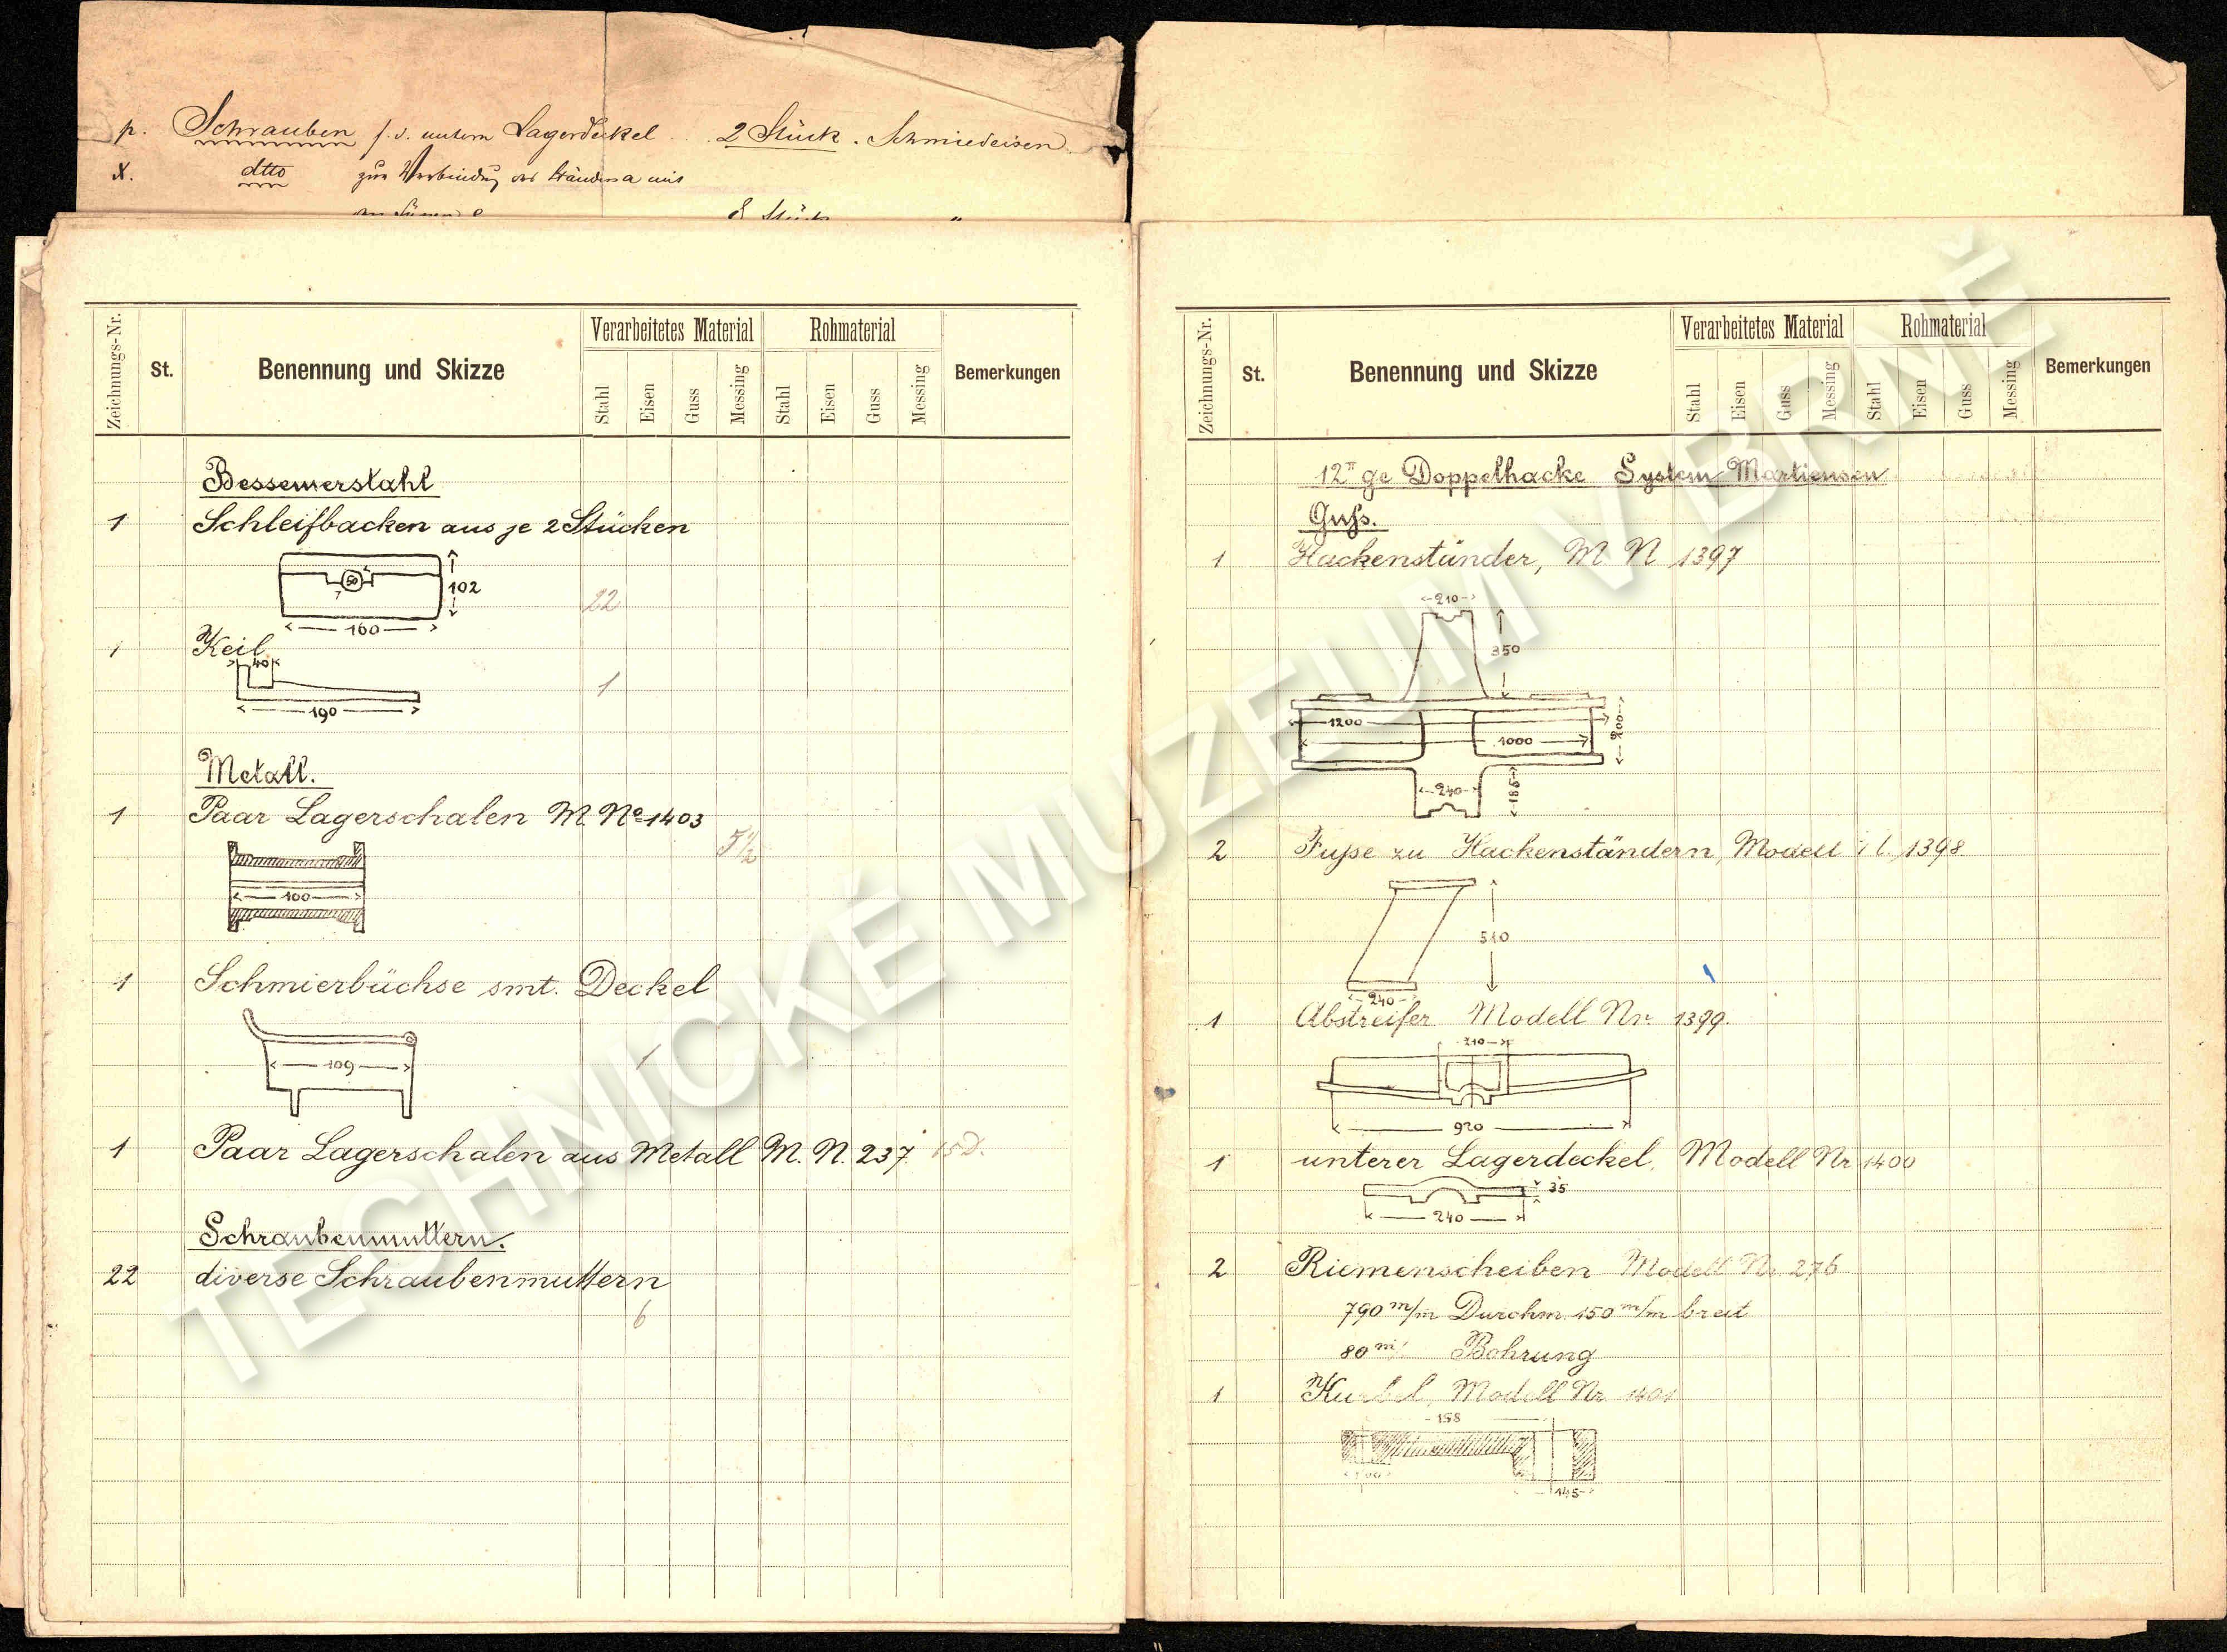 p. Schrauben f. d. untern Lagerdeckel 2 Stück. Schmiedeisen
x. dtto zur Verbindung
8 Stück "
Zeichnungs-Nr.
St.
Benennung und Skizze
Verarbeitetes Material
Rohmaterial
Stahl
Eisen
Guss
Messing
Stahl
Eisen
Guss
Messing
Bemerkungen
Bessemerstahl
1 Schleifbacken aus je 2 Stücken
50
102
22
160
1 Keil
40
1
190
Metall.
1 Paar Lagerschalen M. No 1403
5 1/2
100
1 Schmierbüchse smt. Deckel
109
1
1 Paar Lagerschalen aus Metall M. N. 237. 15 D.
Schraubenmuttern.
22 diverse Schraubenmuttern
6
Zeichnungs-Nr.
St.
Benennung und Skizze
Verarbeitetes Material
Rohmaterial
Stahl
Eisen
Guss
Messing
Stahl
Eisen
Guss
Messing
Bemerkungen
12" ge Doppelhacke System Martiensen
Guſs.
1 Hackenständer, M N 1397
210
350
1200
1000
200
240
186
2 Fuſse zu Hackenständern, Modell 1398.
510
240
1 Abstreifer Modell Nr. 1399.
210
920
1 unterer Lagerdeckel, Modell Nr 1400
35
240
2 Riemenscheiben Modell Nr. 276
790 m/m Durchm. 150 m/m breit
80 m/ Bohrung
1 Kurbel, Modell Nr. 1401
158
100
145
TECHNICKÉ MUZEUM V BRNĚ